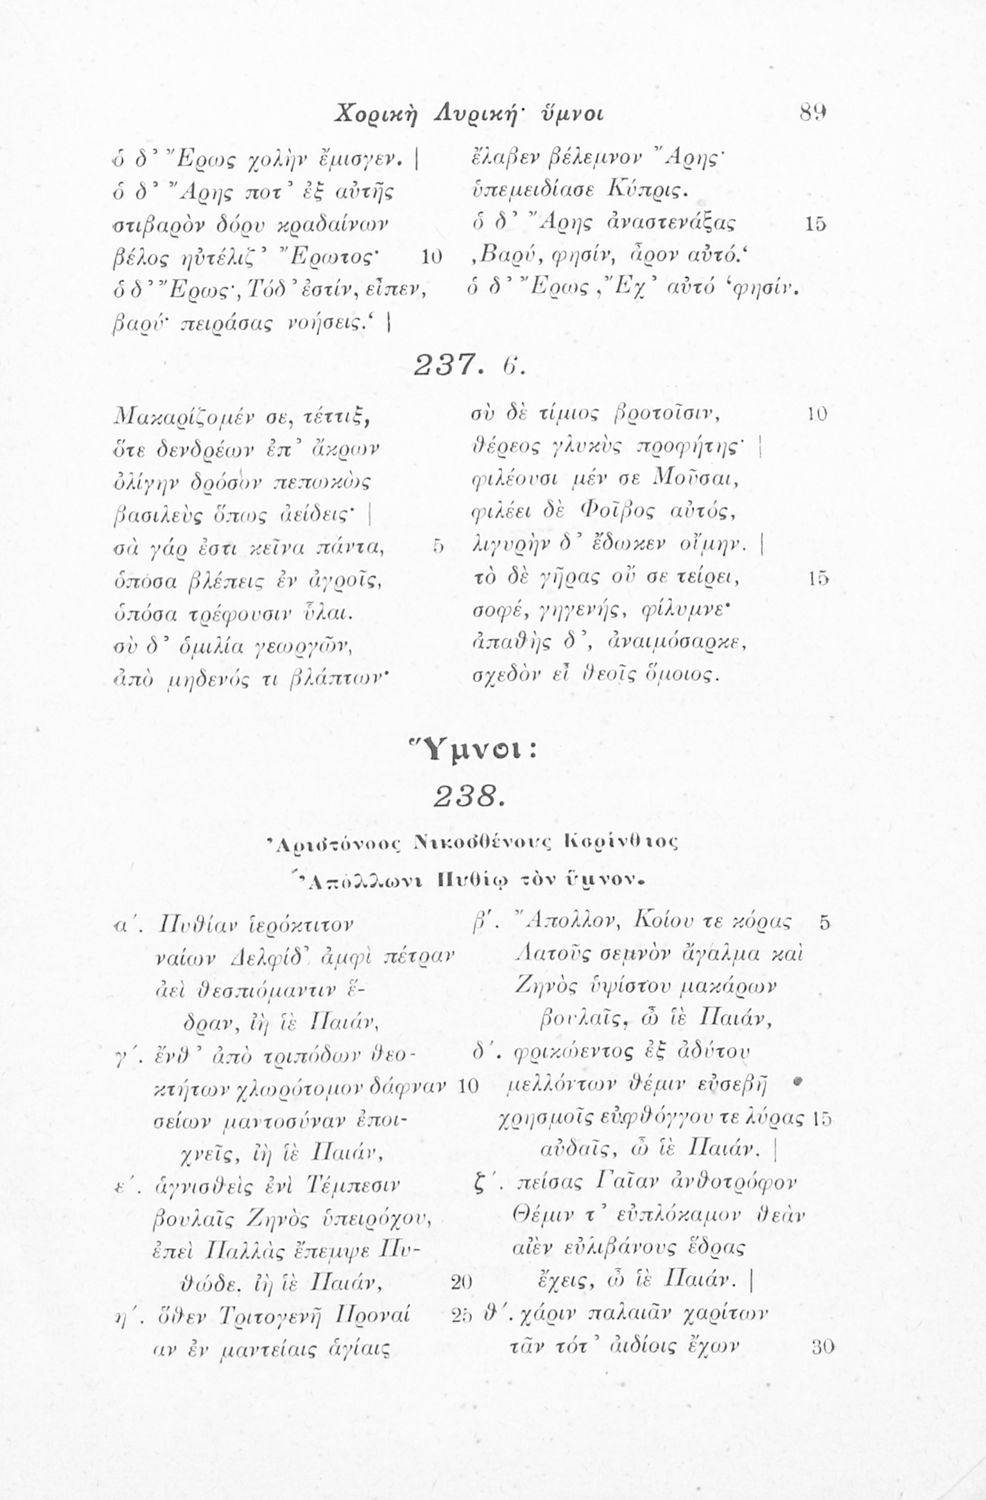 Χορικὴ Λυρική· ὕμνοι 89
ὁ δ’ Ἔρως χολὴν ἔμισγεν. |
ὁ δ’ Ἄρης ποτ’ ἐξ αὐτῆς
στιβαρὸν δόρυ κραδαίνων
βέλος ηὐτέλιζ’ Ἔρωτος· 10
ὁ δ’ Ἔρως·‚ Τόδ’ ἐστίν, εἶπεν,
βαρύ· πειράσας νοήσεις.‘ |
ἔλαβεν βέλεμνον Ἄρης·
ὑπεμειδίασε Κύπρις.
ὁ δ’ Ἄρης ἀναστενάξας 15
‚Βαρύ, φησίν, ἆρον αὐτό.‘
ὁ δ’ Ἔρως ‚Ἔχ’ αὐτό ‘φησίν.
237. 6.
Μακαρίζομέν σε, τέττιξ,
ὅτε δενδρέων ἐπ’ ἄκρων
ὀλίγην δρόσον πεπωκὼς
βασιλεὺς ὅπως ἀείδεις· |
σὰ γάρ ἐστι κεῖνα πάντα, 5
ὁπόσα βλέπεις ἐν ἀγροῖς,
ὁπόσα τρέφουσιν ὗλαι.
σὺ δ’ ὁμιλία γεωργῶν,
ἀπὸ μηδενός τι βλάπτων·
σὺ δὲ τίμιος βροτοῖσιν, 10
θέρεος γλυκὺς προφήτης· |
φιλέουσι μέν σε Μοῦσαι,
φιλέει δὲ Φοῖβος αὐτός,
λιγυρὴν δ’ ἔδωκεν οἴμην. |
τὸ δὲ γῆρας οὔ σε τείρει, 15
σοφέ, γηγενής, φίλυμνε·
ἀπαθὴς δ’, ἀναιμόσαρκε,
σχεδὸν εἶ θεοῖς ὅμοιος.
Ὕμνοι:
238.
Ἀριστόνοος Νικοσθένους Κορίνθιος
Ἀπόλλωνι Πυθίῳ τὸν ὕμνον.
α΄. Πυθίαν ἱερόκτιτον
ναίων Δελφίδ’ ἀμφὶ πέτραν
ἀεὶ θεσπιόμαντιν ἕ-
δραν, ἰὴ ἱὲ Παιάν,
β΄. Ἄπολλον, Κοίου τε κόρας 5
Λατοῦς σεμνὸν ἄγαλμα καὶ
Ζηνὸς ὑψίστου μακάρων
βουλαῖς, ὦ ἱὲ Παιάν,
γ΄. ἔνθ’ ἀπὸ τριπόδων θεο-
κτήτων χλωρότομον δάφναν 10
σείων μαντοσύναν ἐποι-
χνεῖς, ἰὴ ἱὲ Παιάν,
δ΄. φρικώεντος ἐξ ἀδύτου
μελλόντων θέμιν εὐσεβῆ
χρησμοῖς εὐφθόγγου τε λύρας 15
αὐδαῖς, ὦ ἱὲ Παιάν. |
ε΄. ἁγνισθεὶς ἐνὶ Τέμπεσιν
βουλαῖς Ζηνὸς ὑπειρόχου,
ἐπεὶ Παλλὰς ἔπεμψε Πυ-
θώδε. ἰὴ ἱὲ Παιάν, 20
ζ΄. πείσας Γαῖαν ἀνθοτρόφον
Θέμιν τ’ εὐπλόκαμον θεὰν
αἰὲν εὐλιβάνους ἕδρας
ἔχεις, ὦ ἱὲ Παιάν. |
η΄. ὅθεν Τριτογενῆ Προναί 25
αν ἐν μαντείαις ἁγίαις
θ΄. χάριν παλαιᾶν χαρίτων
τᾶν τότ’ ἀιδίοις ἔχων 30